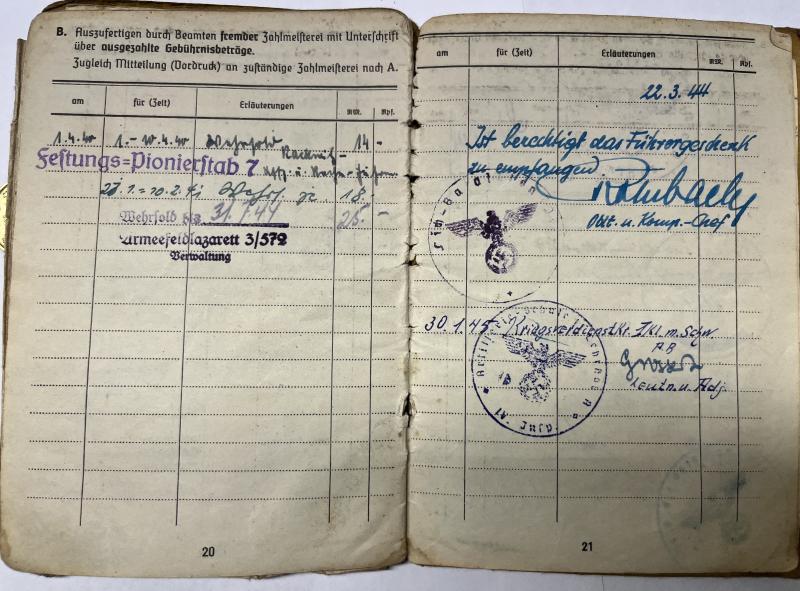 B. Auszufertigen durch Beamten fremder Zahlmeisterei mit Unterschrift
über ausgezahlte Gebührnisbeträge.
Zugleich Mitteilung (Vordruck) an zuständige Zahlmeisterei nach A.
am für (Zeit) Erläuterungen RM. Rpf.
1.4.40 1.-10.4.40 Wehrsold 14 -
Festungs-Pionierstab 7
Wehrsold bis 31.7.44 25 -
Armeefeldlazarett 3/572
Verwaltung
20
am für (Zeit) Erläuterungen RM. Rpf.
22.3.44
Ist berechtigt das Führergeschenk
zu empfangen
Oblt. u. Komp.-Chef
30.1.45 Kriegsverdienstkr. II.Kl. m. Schw.
Leutn. u. Adj.
21